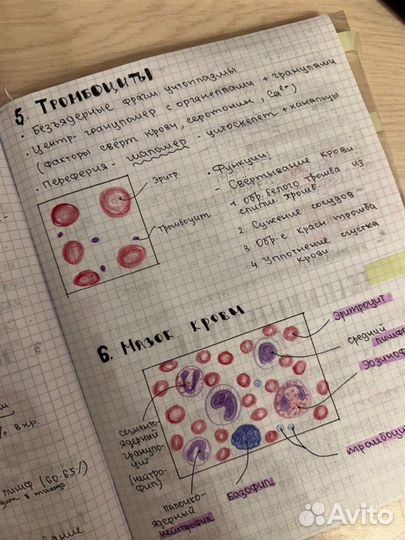 5. ТРОМБОЦИТЫ
· Безъядерные фрагм. цитоплазмы
· Центр - грануломер с органеллами + гранулами
(факторы сверт. крови, серотонин, Ca²⁺)
· Переферия - гиаломер - цитоскелет + канальцы.
Эритр.
Тромбоцит
· Функции:
- Свёртывание крови.
1. Обр. белого тромба из
слипш. тромб.
2. Сужение сосудов
3. Обр-е красн. тромба
4. Уплотнение сгустка
крови.
6. МАЗОК КРОВИ
Эритроцит
средний
сегменто-
ядерный
грануло-
цит
(нейтро-
фил)
палочко-
ядерный
нейтрофил
базофил
лимф (60-65%)
Avito